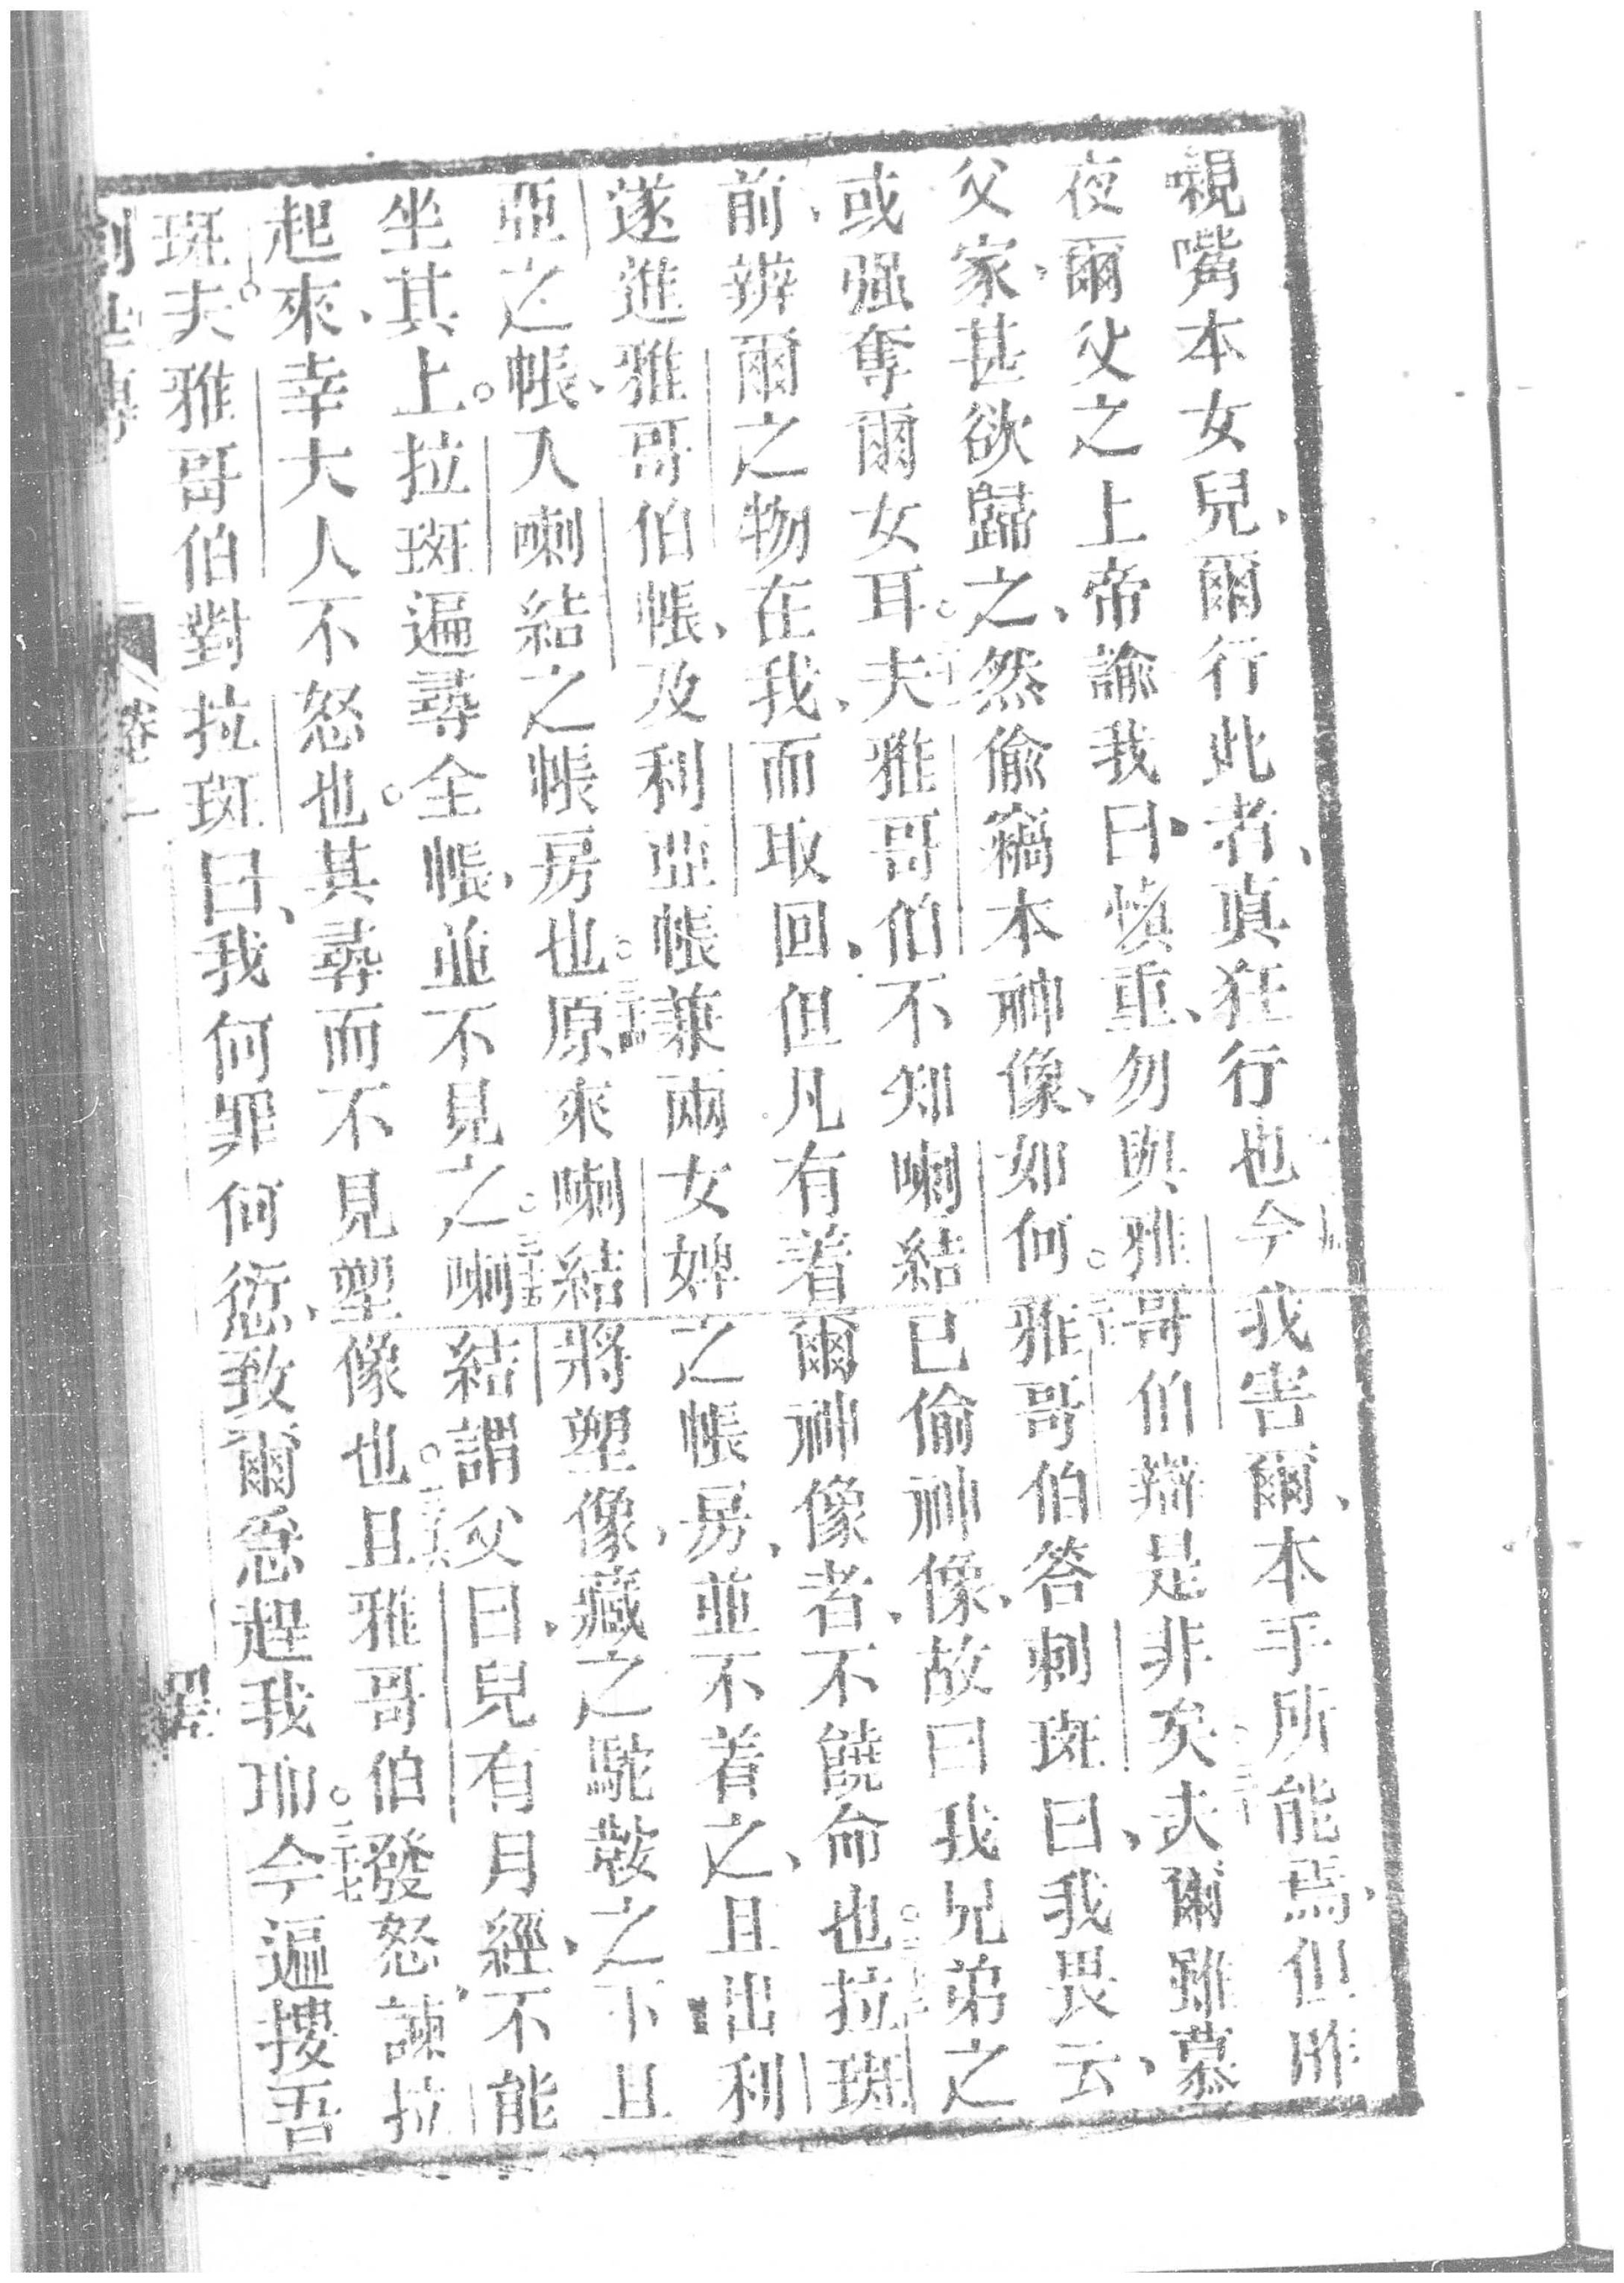 嚫嘴本女兒、爾行此者、眞狂行也今我害爾、本手所能焉、但昨
夜爾父之上帝諭我曰、愼重、勿與雅哥伯辯是非矣夫爾雖慕
父家、甚欲歸之、然偷竊本神像、如何。雅哥伯答剌斑曰、我畏云、
或强奪爾女耳。夫雅哥伯不知喇結已偷神像、故曰我兄弟之
前、辨爾之物在我、而取回、但凡有着爾神像者、不饒命也。拉斑
遂進雅哥伯帳、及利亞帳兼兩女婢之帳房、並不着之、且出利
亞之帳、入喇結之帳房也。原來喇結將塑像、藏之駝鞍之下且
坐其上。拉斑遍尋全帳、並不見之。喇結謂父曰、兒有月經、不能
起來、幸大人不怒也。其尋而不見塑像也。且雅哥伯發怒諫拉
斑。夫雅哥伯對拉斑曰、我何罪何愆、致爾急趕我耶。今遍搜吾